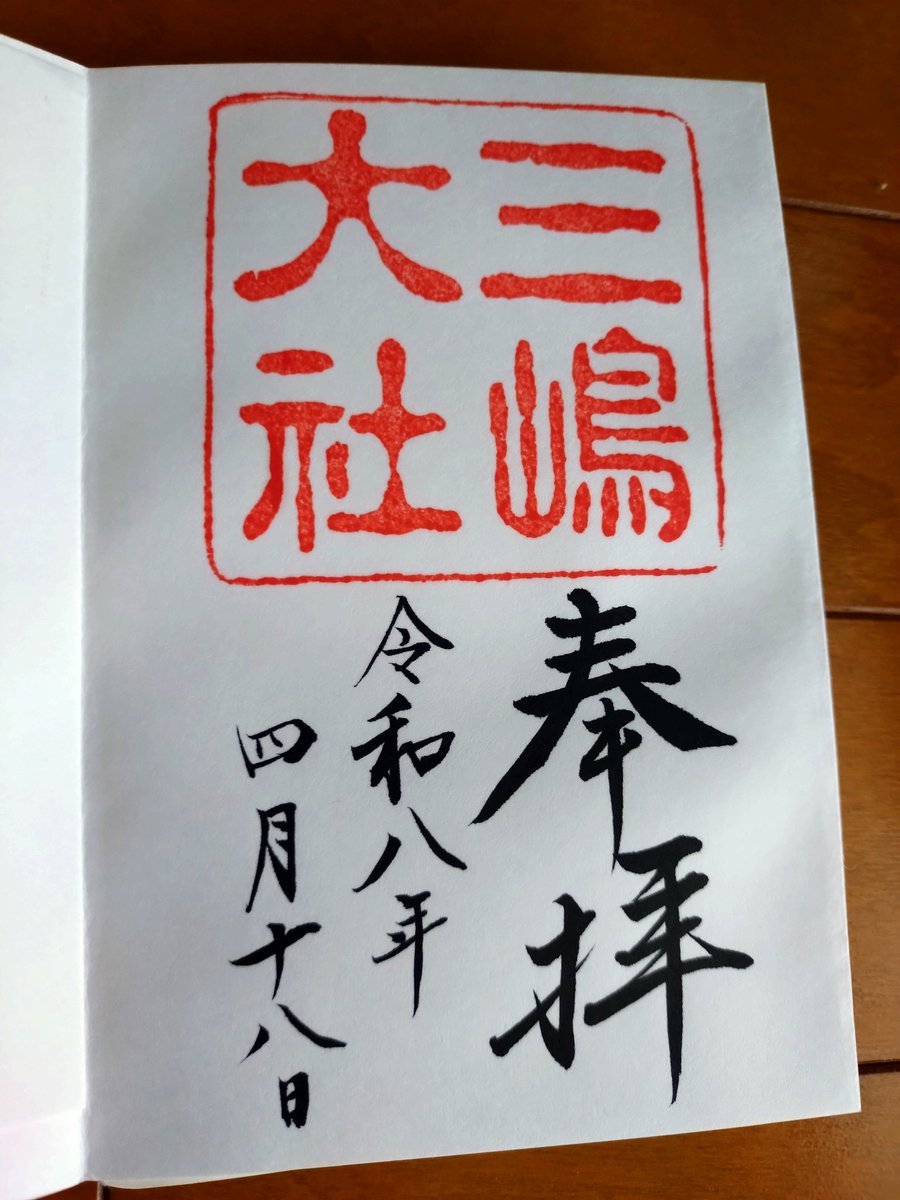 三嶋
大社
奉拝
令和八年
四月十八日